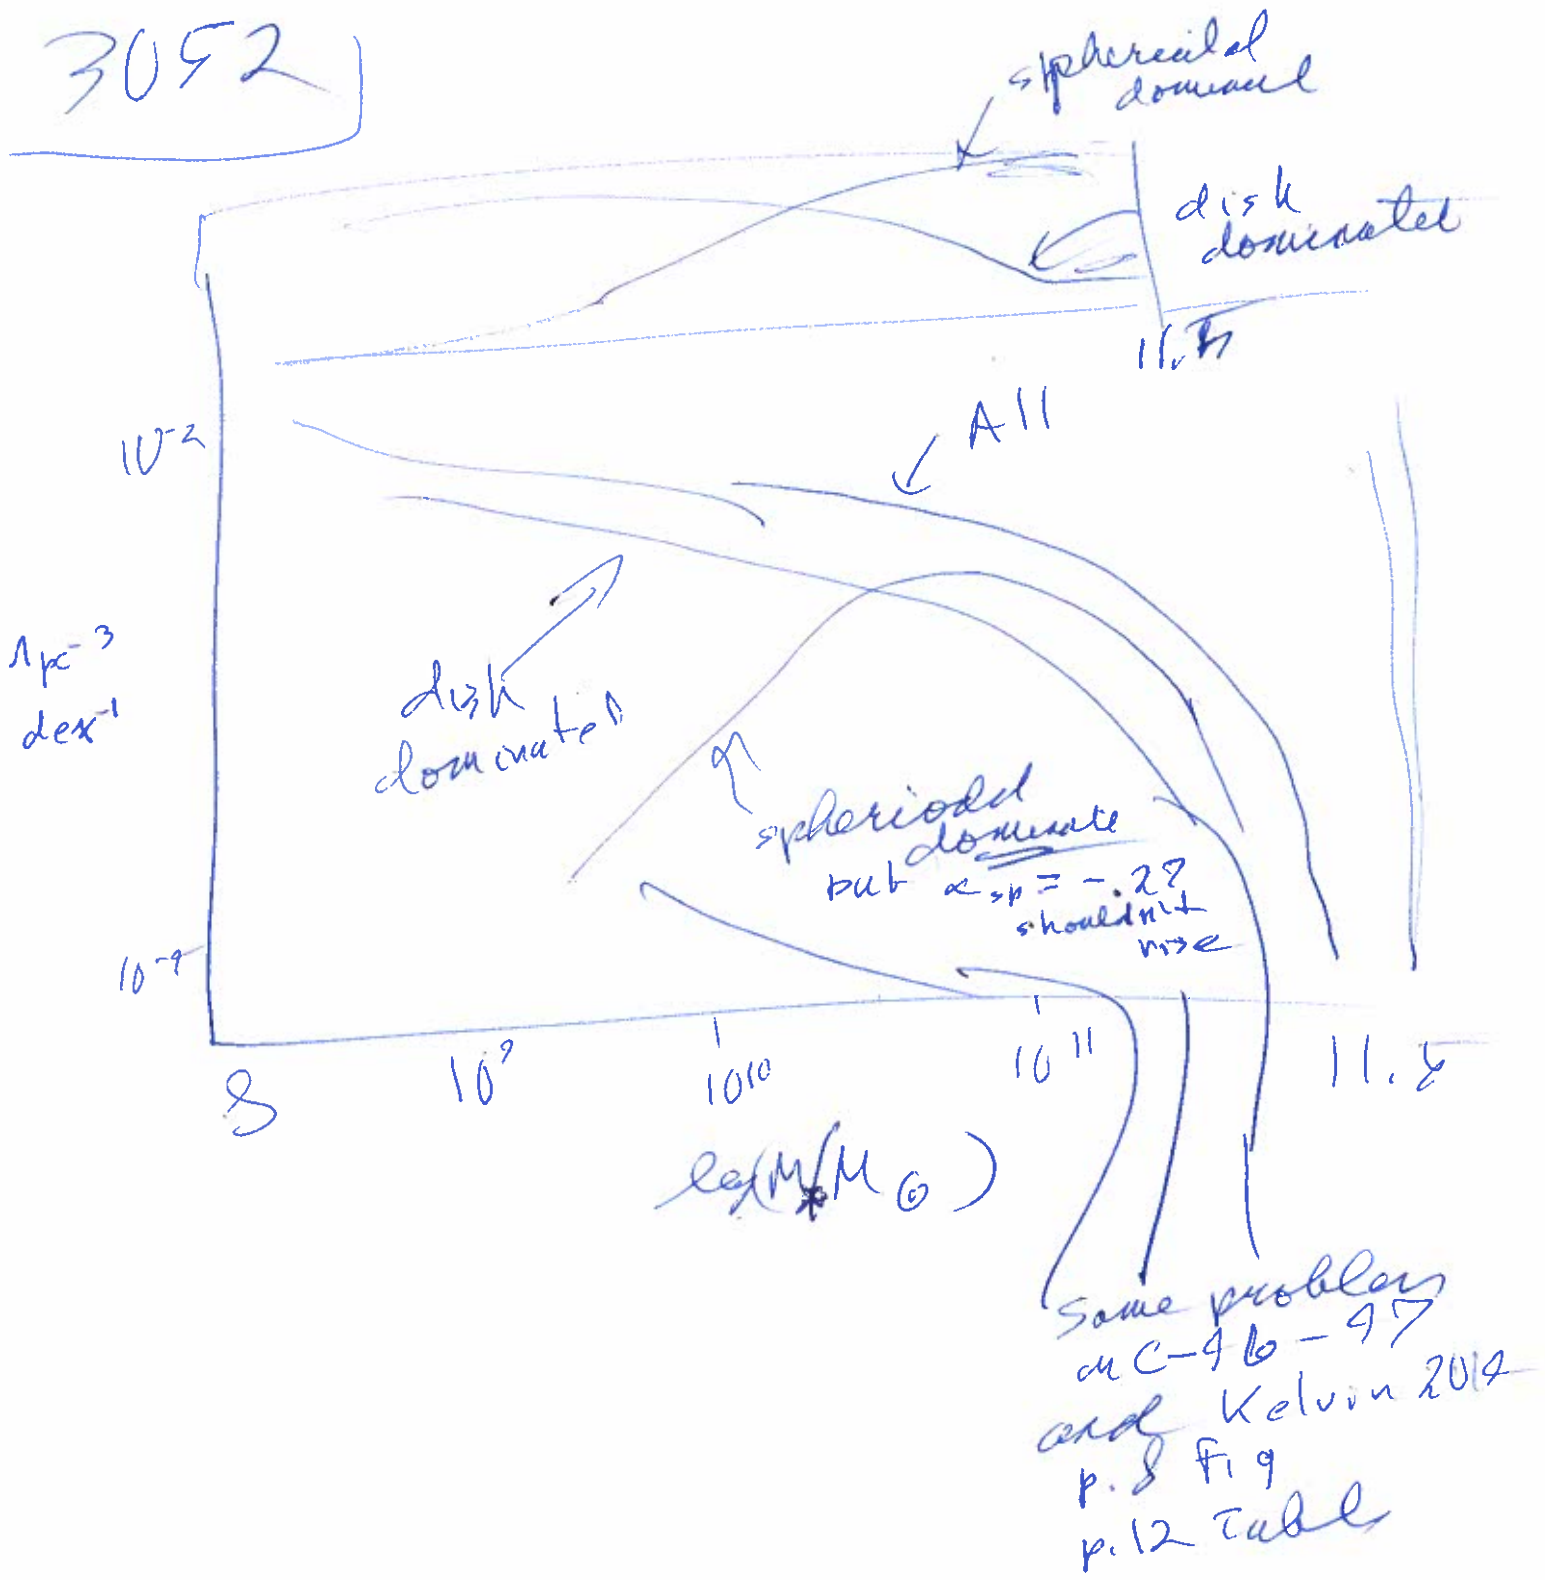 3052
spheroidal
dominated
disk
dominated
11.5
All
10^-2
Mpc^-3
dex^-1
disk
dominated
spheriodal
dominate
but α_sp = -.27
shouldn't
rise
10^-4
8
10^9
10^10
10^11
11.8
log(M_*/M_⊙)
Same problem
C-46-47
and Kelvin 2014
p.8 Fig
p.12 Table